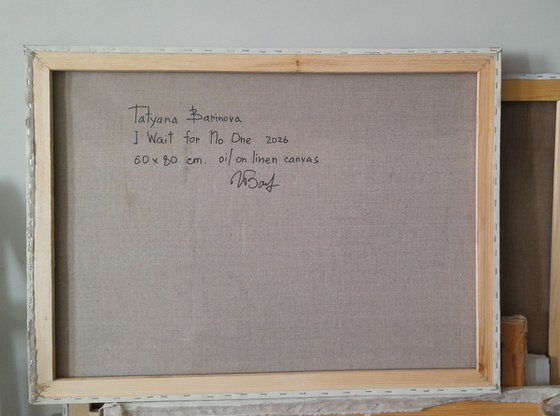 Tatyana Barinova
I Wait for No One 2026
60 x 80 cm. oil on linen canvas